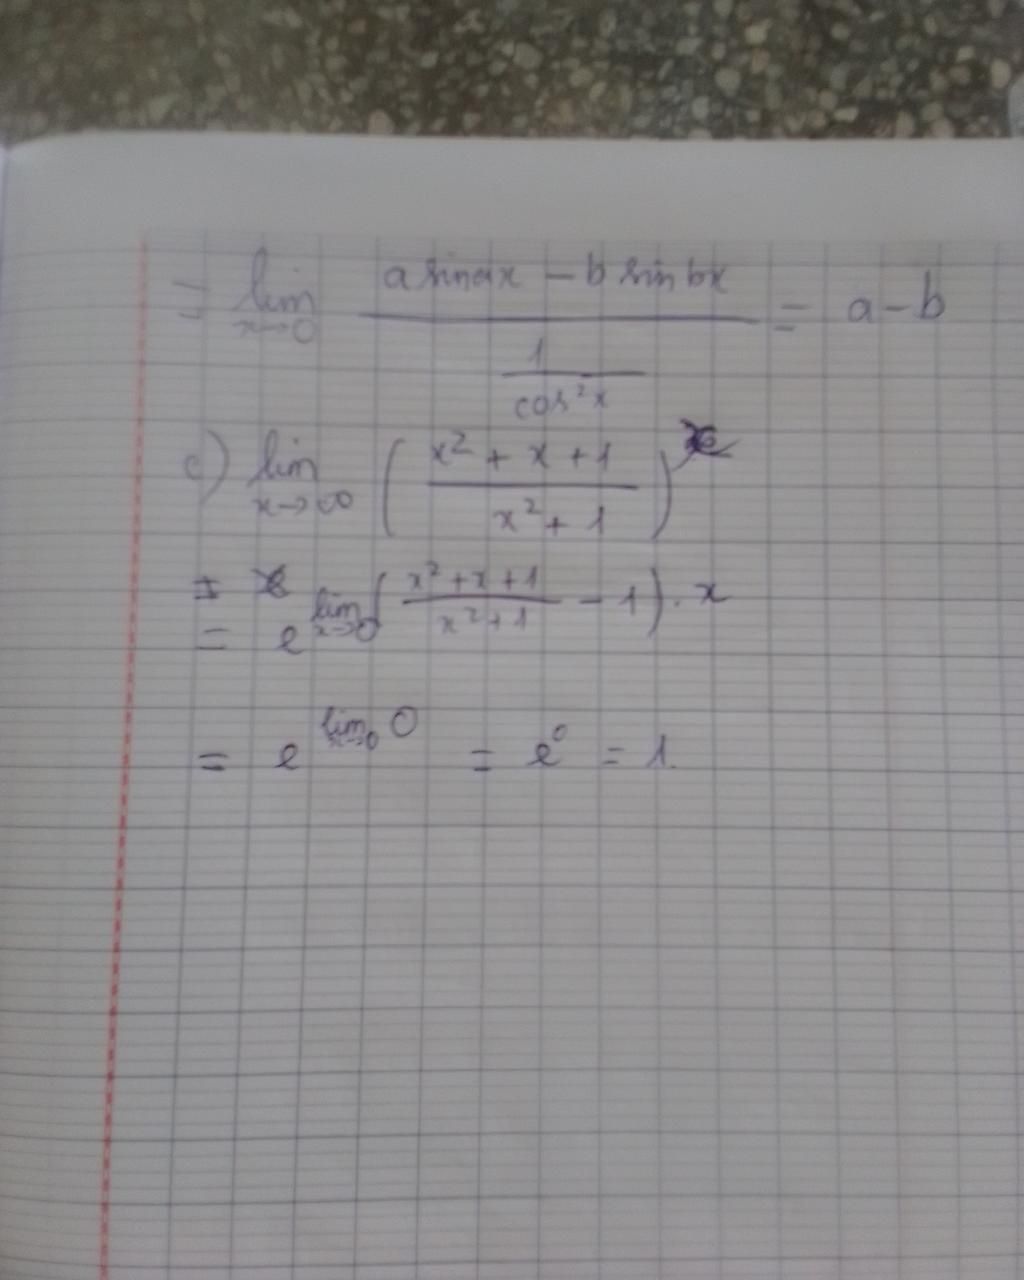 = lim x→0 (a sinax - b sinbx) / (1 / cos²x) = a-b
c) lim x→∞ ((x² + x + 1) / (x² + 1))^x
=
= e^(lim x→0 ((x² + x + 1) / (x² + 1) - 1) . x)
= e^(lim x→0 0) = e^0 = 1.